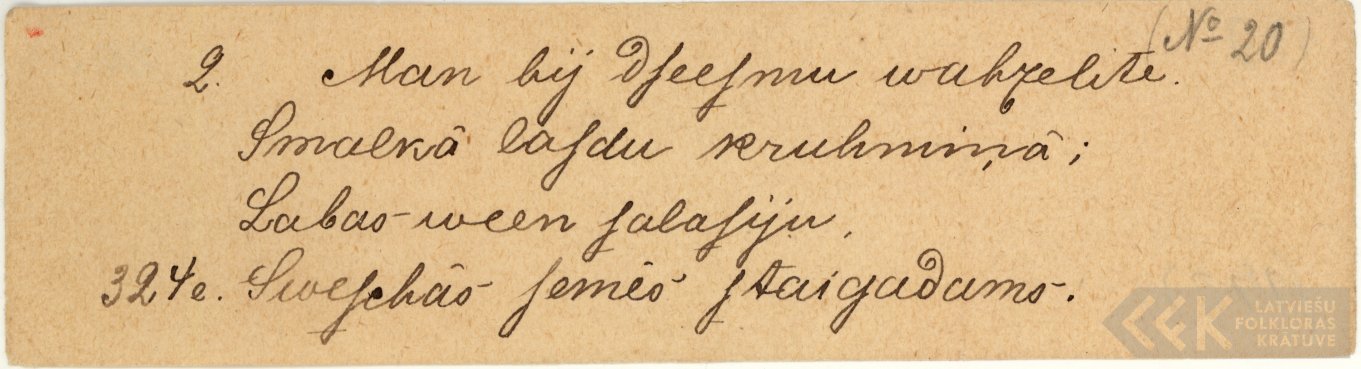 (№ 20)
2. Man bij dſeeſmu wahzelite.
Smalkâ laſdu kruhmiņâ;
Labas ween ſalaſiju,
324e. Sweſchâs ſemês ſtaigadams.
LATVIEŠU
FOLKLORAS
KRĀTUVE